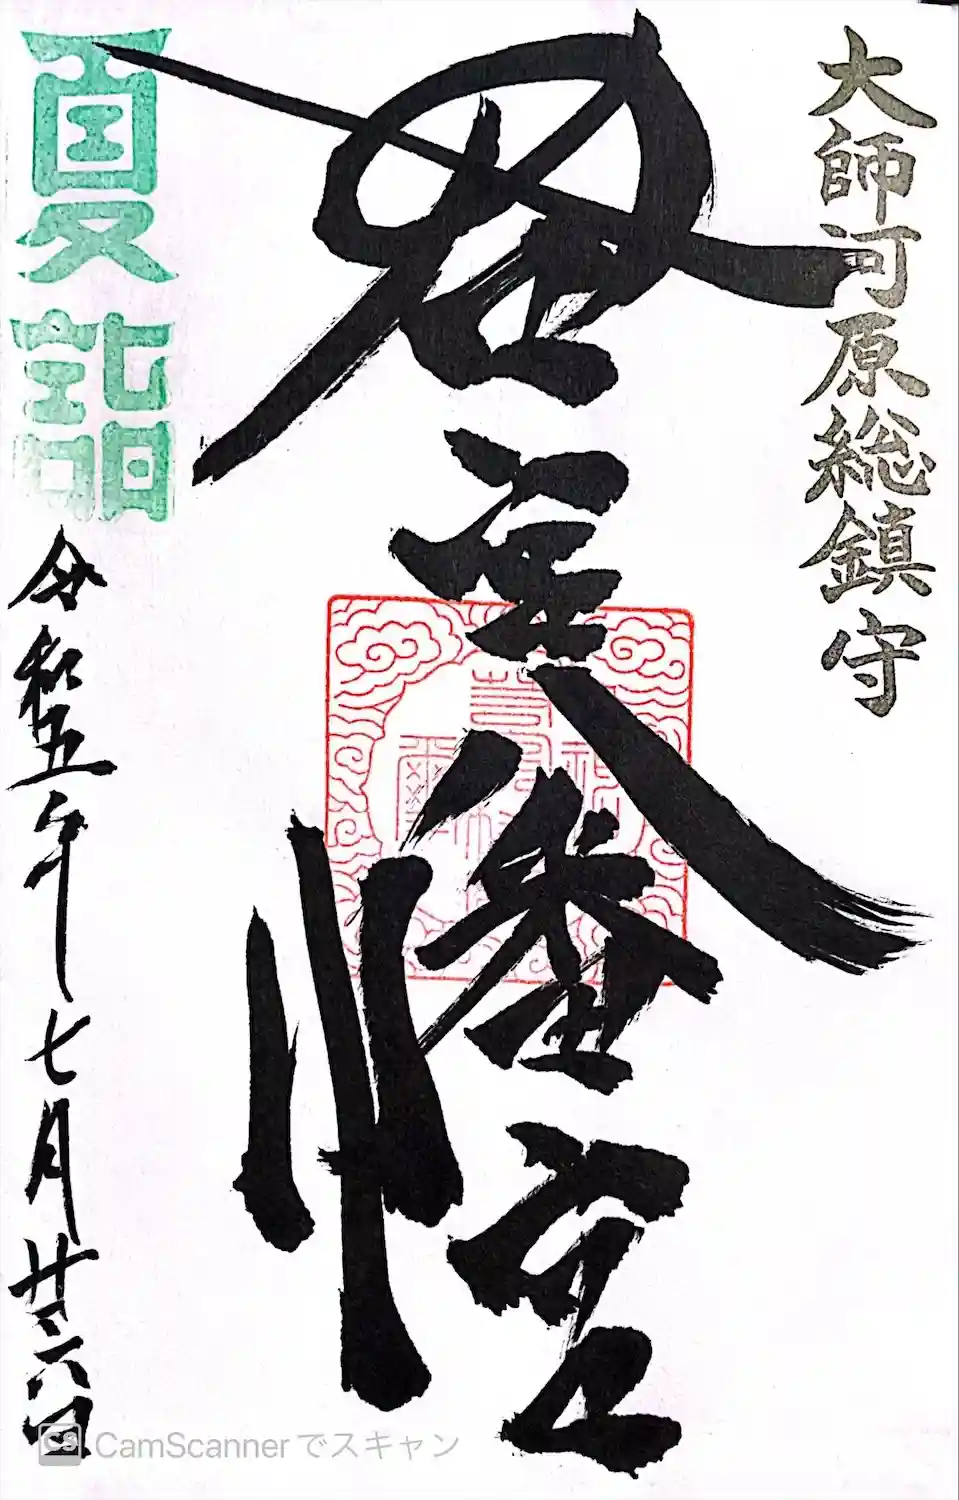 大師河原総鎮守
若宮八幡宮
夏詣
令和五年七月廿六日
CS CamScannerでスキャン